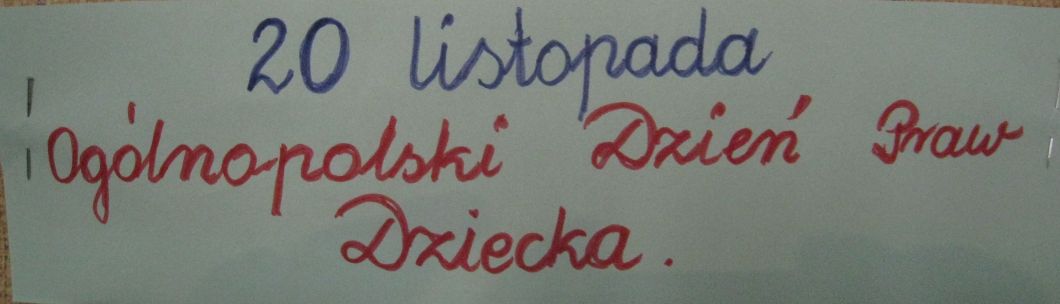 20 listopada
Ogólnopolski Dzień Praw
Dziecka.